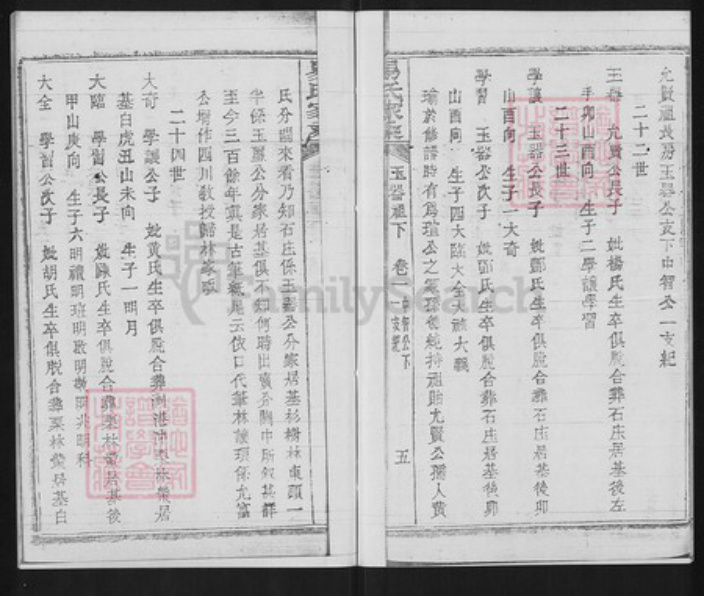 允賢祖長房玉器公支下中智公一支紀
二十二世
玉器 允賢公長子 妣楊氏生卒俱脫合葬石庄居基後左
手卯山酉向 生子二學讓學習
二十三世
學讓 玉器公長子 妣鄧氏生卒俱脫合葬石庄居基後卯
山酉向 生子一大奇
學習 玉器公次子 妣鄧氏生卒俱脫合葬石庄居基後卯
山酉向 生子四大臨大全大 大義
瑜於修譜時有為瑄公之 孫 純持祖貽尤賢公孺人黃
玉器祖下 卷一 中智公下 支紀 五
楊氏家乘
氏分關來看乃知石庄係玉器公分家居基杉樹林東頭一
半係玉璽公分家居基俱不知何時出賣分關中所叙甚詳
至今三百餘年真是古筆紙尾云依口代筆林讓 係允富
公壻作四川教授歸林家
二十四世
大奇 學讓公子 妣黃氏生卒俱脫合葬 港沖栗林 居
基白虎丑山未向 生子一明月
大臨 學習公長子 妣陳氏生卒俱脫合葬栗林 居基後
甲山庚向 生子六明禮明班明啟明 明兆明科
大全 學習公次子 妣胡氏生卒俱脫合葬栗林 居基白
FamilySearch